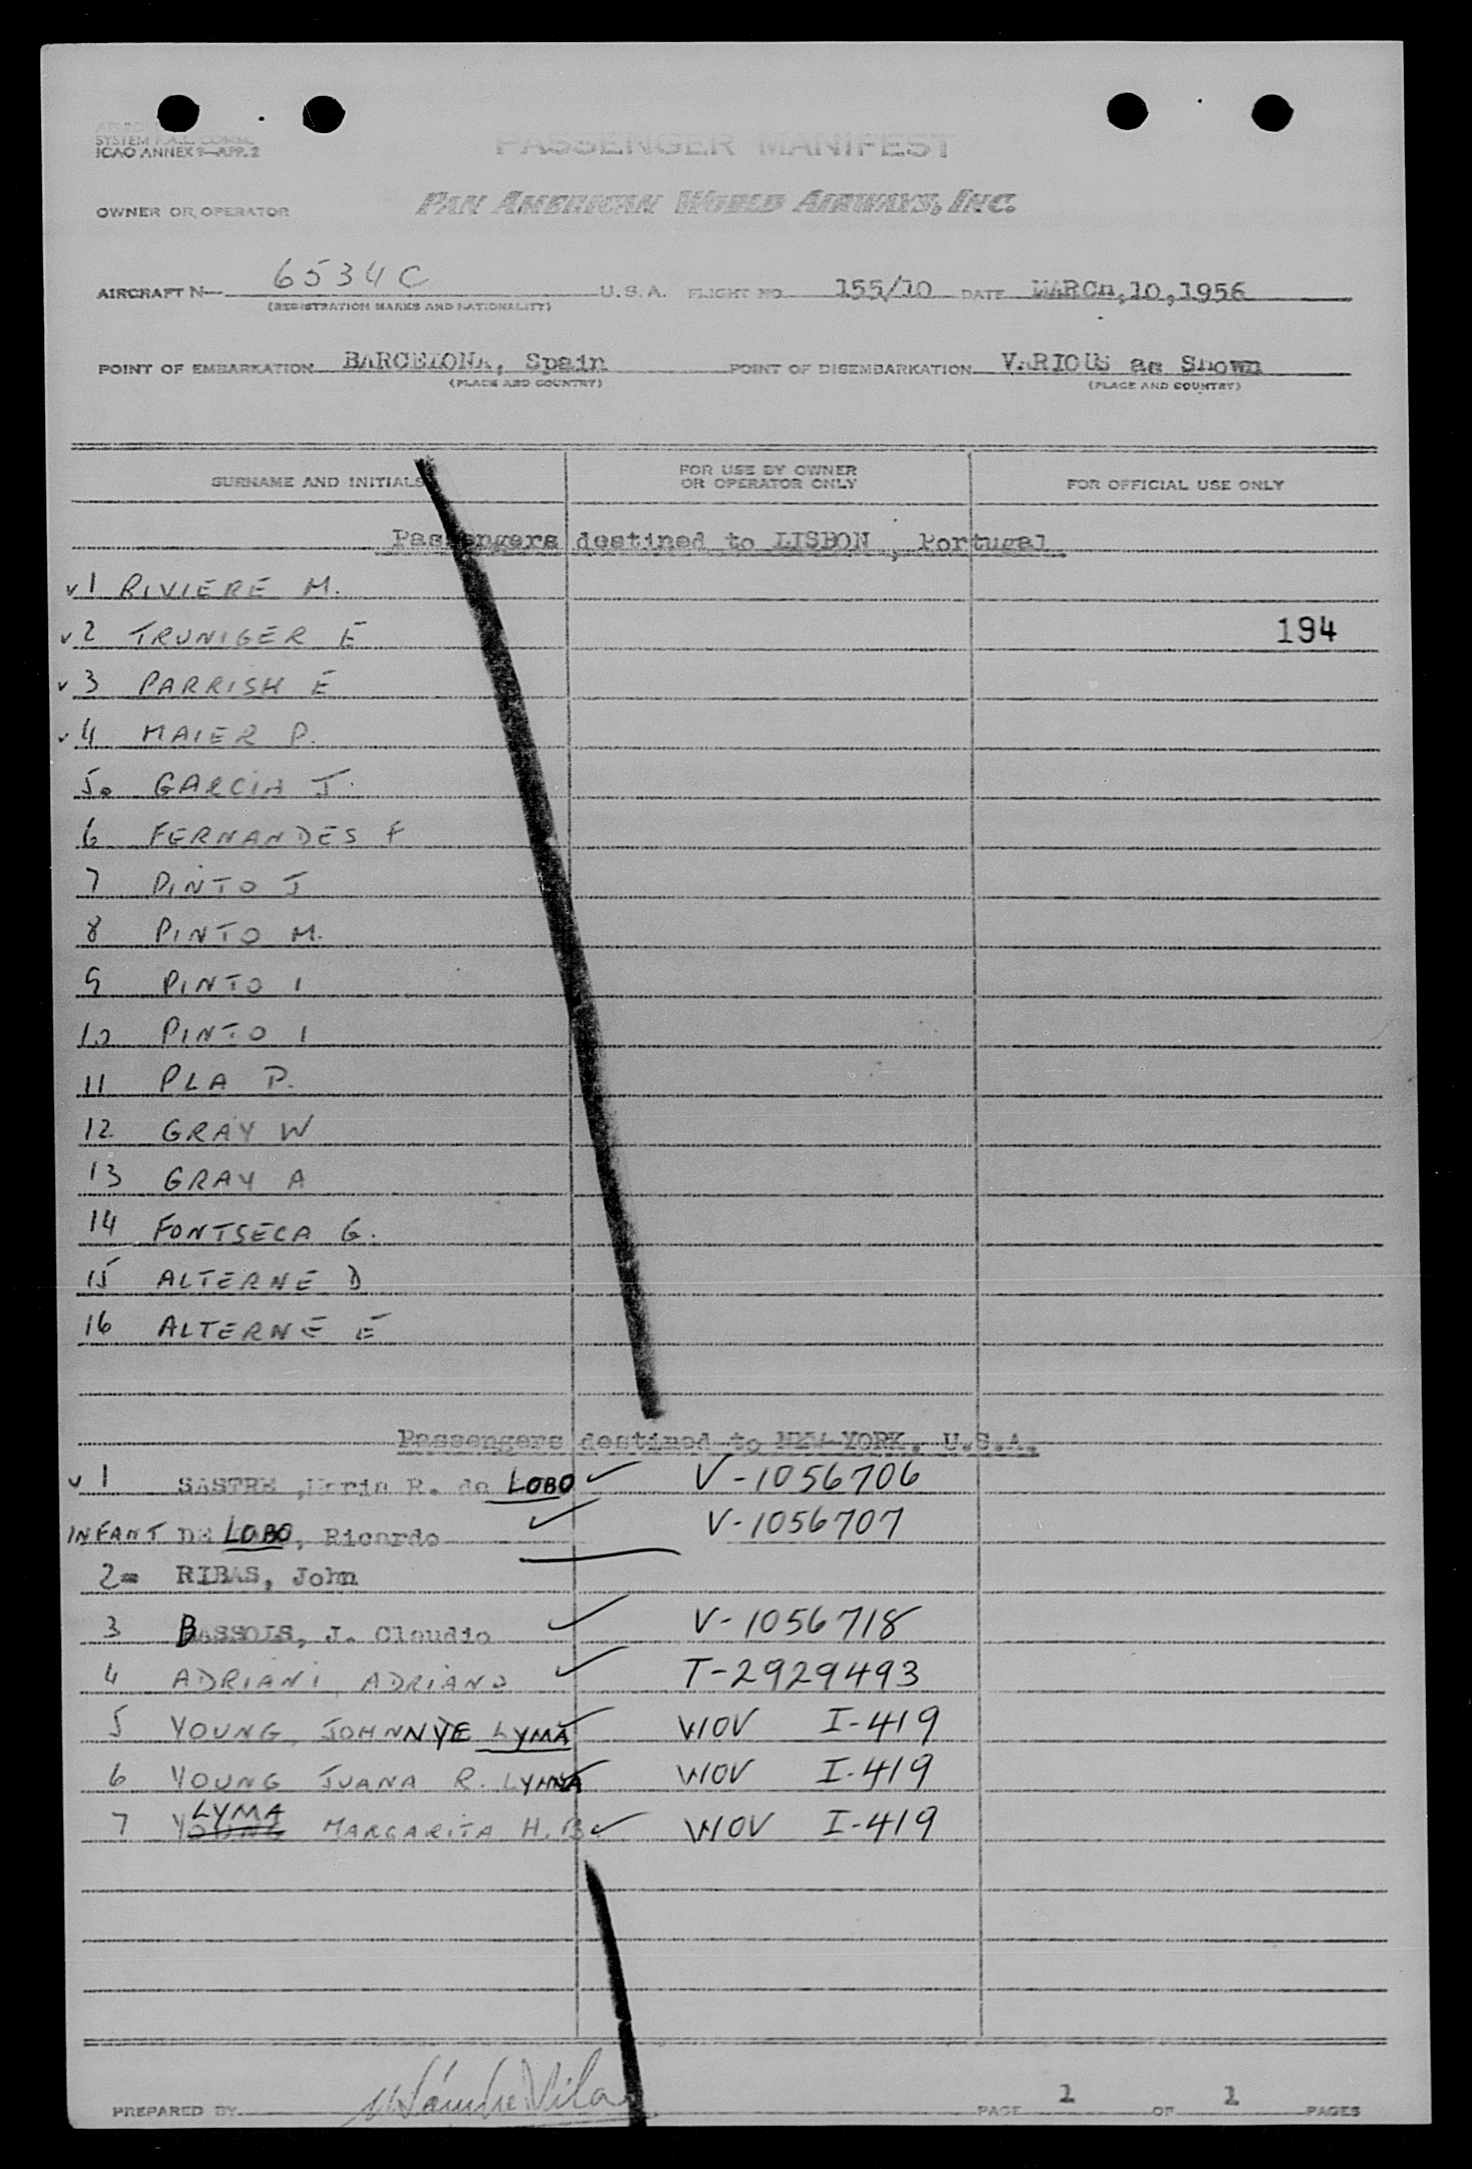 SYSTEM F.A.L. COMM.
ICAO ANNEX 9—APP. 2
PASSENGER MANIFEST
OWNER OR OPERATOR PAN AMERICAN WORLD AIRWAYS, INC.
AIRCRAFT N— 6534C U.S.A. FLIGHT NO 155/10 DATE MARCH,10,1956
(REGISTRATION MARKS AND NATIONALITY)
POINT OF EMBARKATION BARCELONA, Spain POINT OF DISEMBARKATION VARIOUS as Shown
(PLACE AND COUNTRY) (PLACE AND COUNTRY)
SURNAME AND INITIALS FOR USE BY OWNER OR OPERATOR ONLY FOR OFFICIAL USE ONLY
Passengers destined to LISBON, Portugal.
v 1 RIVIERE M.
v 2 TRUNIGER E 194
v 3 PARRISH E
v 4 MAIER P.
5. GARCIA J.
6 FERNANDES F
7 PINTO J
8 PINTO M.
9 PINTO I
10 PINTO I
11 PLA P.
12 GRAY W
13 GRAY A
14 FONTSECA G.
15 ALTERNE D
16 ALTERNE E
Passengers destined to NEW YORK, U.S.A.
v 1 SASTRE, Maria R. de LOBO ✓ V-1056706
INFANT DE LOBO, Ricardo ✓ V-1056707
2= RIBAS, John
3 BASSOLS, J. Claudio ✓ V-1056718
4 ADRIANI, ADRIANO ✓ T-2929493
5 YOUNG, JOHNNYE LYMA ✓ WOV I-419
6 YOUNG JUANA R. LYMA ✓ WOV I-419
7 YOUNG LYMA MARGARITA H. B ✓ WOV I-419
PREPARED BY PAGE 1 OF 1 PAGES